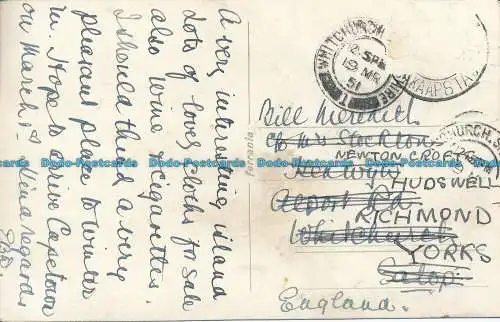 A very interesting island
Lots of lovely cloths for sale
also wine & cigarettes.
I should think a very
pleasant place to winter
in. Hope to arrive Capetown
on March 1st Kind regards
WHITCHURCH
12 MR
51
KAAPSTA
HURCH.S
Ferrania
Bill Meredith
c/o Mrs Stockton
NEWTON CROFT
Kenwyn
HUDSWELL
Alport Rd
RICHMOND
Whitchurch
YORKS
Salop.
England.
Dodo-Postcards Dodo-Postcards Dodo-Postcards Dodo-Postcards Dodo-Postcards